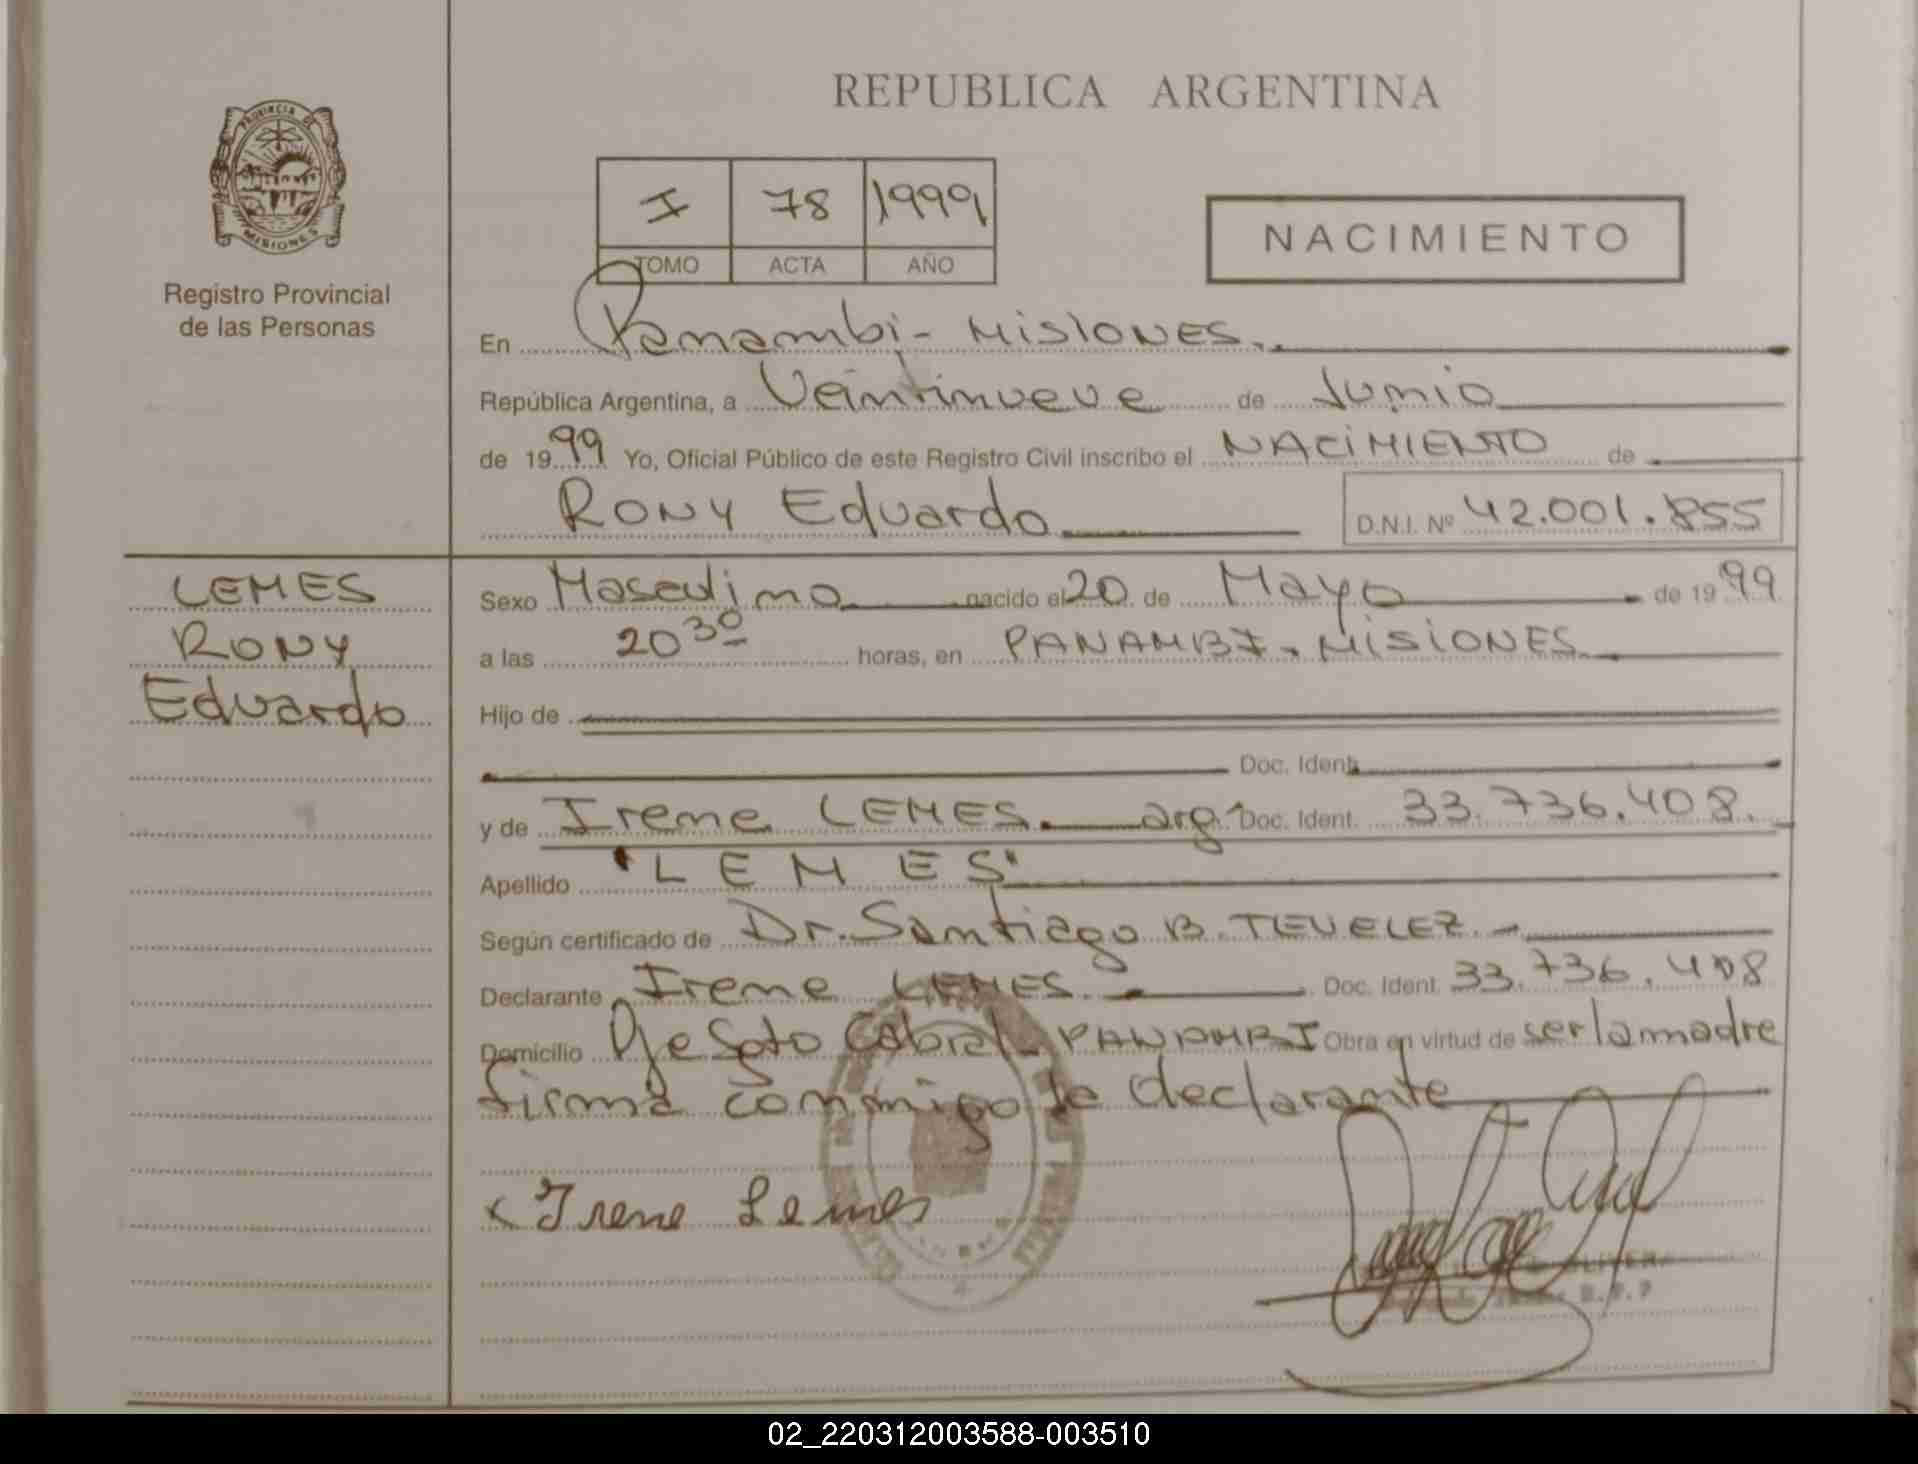 REPUBLICA ARGENTINA
PROVINCIA DE
MISIONES
Registro Provincial
de las Personas
I 78 1999
TOMO ACTA AÑO
NACIMIENTO
En Panambi - MISIONES.
República Argentina, a Veintinueve de Junio
de 1999 Yo, Oficial Público de este Registro Civil inscribo el NACIMIENTO de
RONY Eduardo D.N.I. Nº 42.001.855
LEMES
RONY
Eduardo
Sexo Masculino nacido el 20 de Mayo de 1999
a las 20 30 horas, en PANAMBI - MISIONES
Hijo de
Doc. Ident.
y de Irene LEMES. arg. Doc. Ident. 33.736.408.
Apellido "LEMES"
Según certificado de Dr. Santiago B. TEVELEZ.-
Declarante Irene LEMES. Doc. Ident. 33.736.408
Domicilio Pje Soto Cabral - PANAMBI Obra en virtud de ser la madre
firma conmigo la declarante
Irene Lemes
OLIVERA
02_220312003588-003510